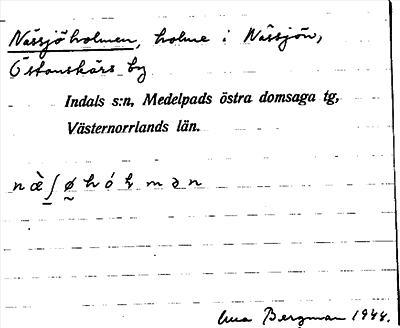 Nässjöholmen, holme i Nässjön,
Östanskärs by
Indals s:n, Medelpads östra domsaga tg,
Västernorrlands län.
n æ̀ ʃ ø̰ h ó l m ə n
Bergman 1944.